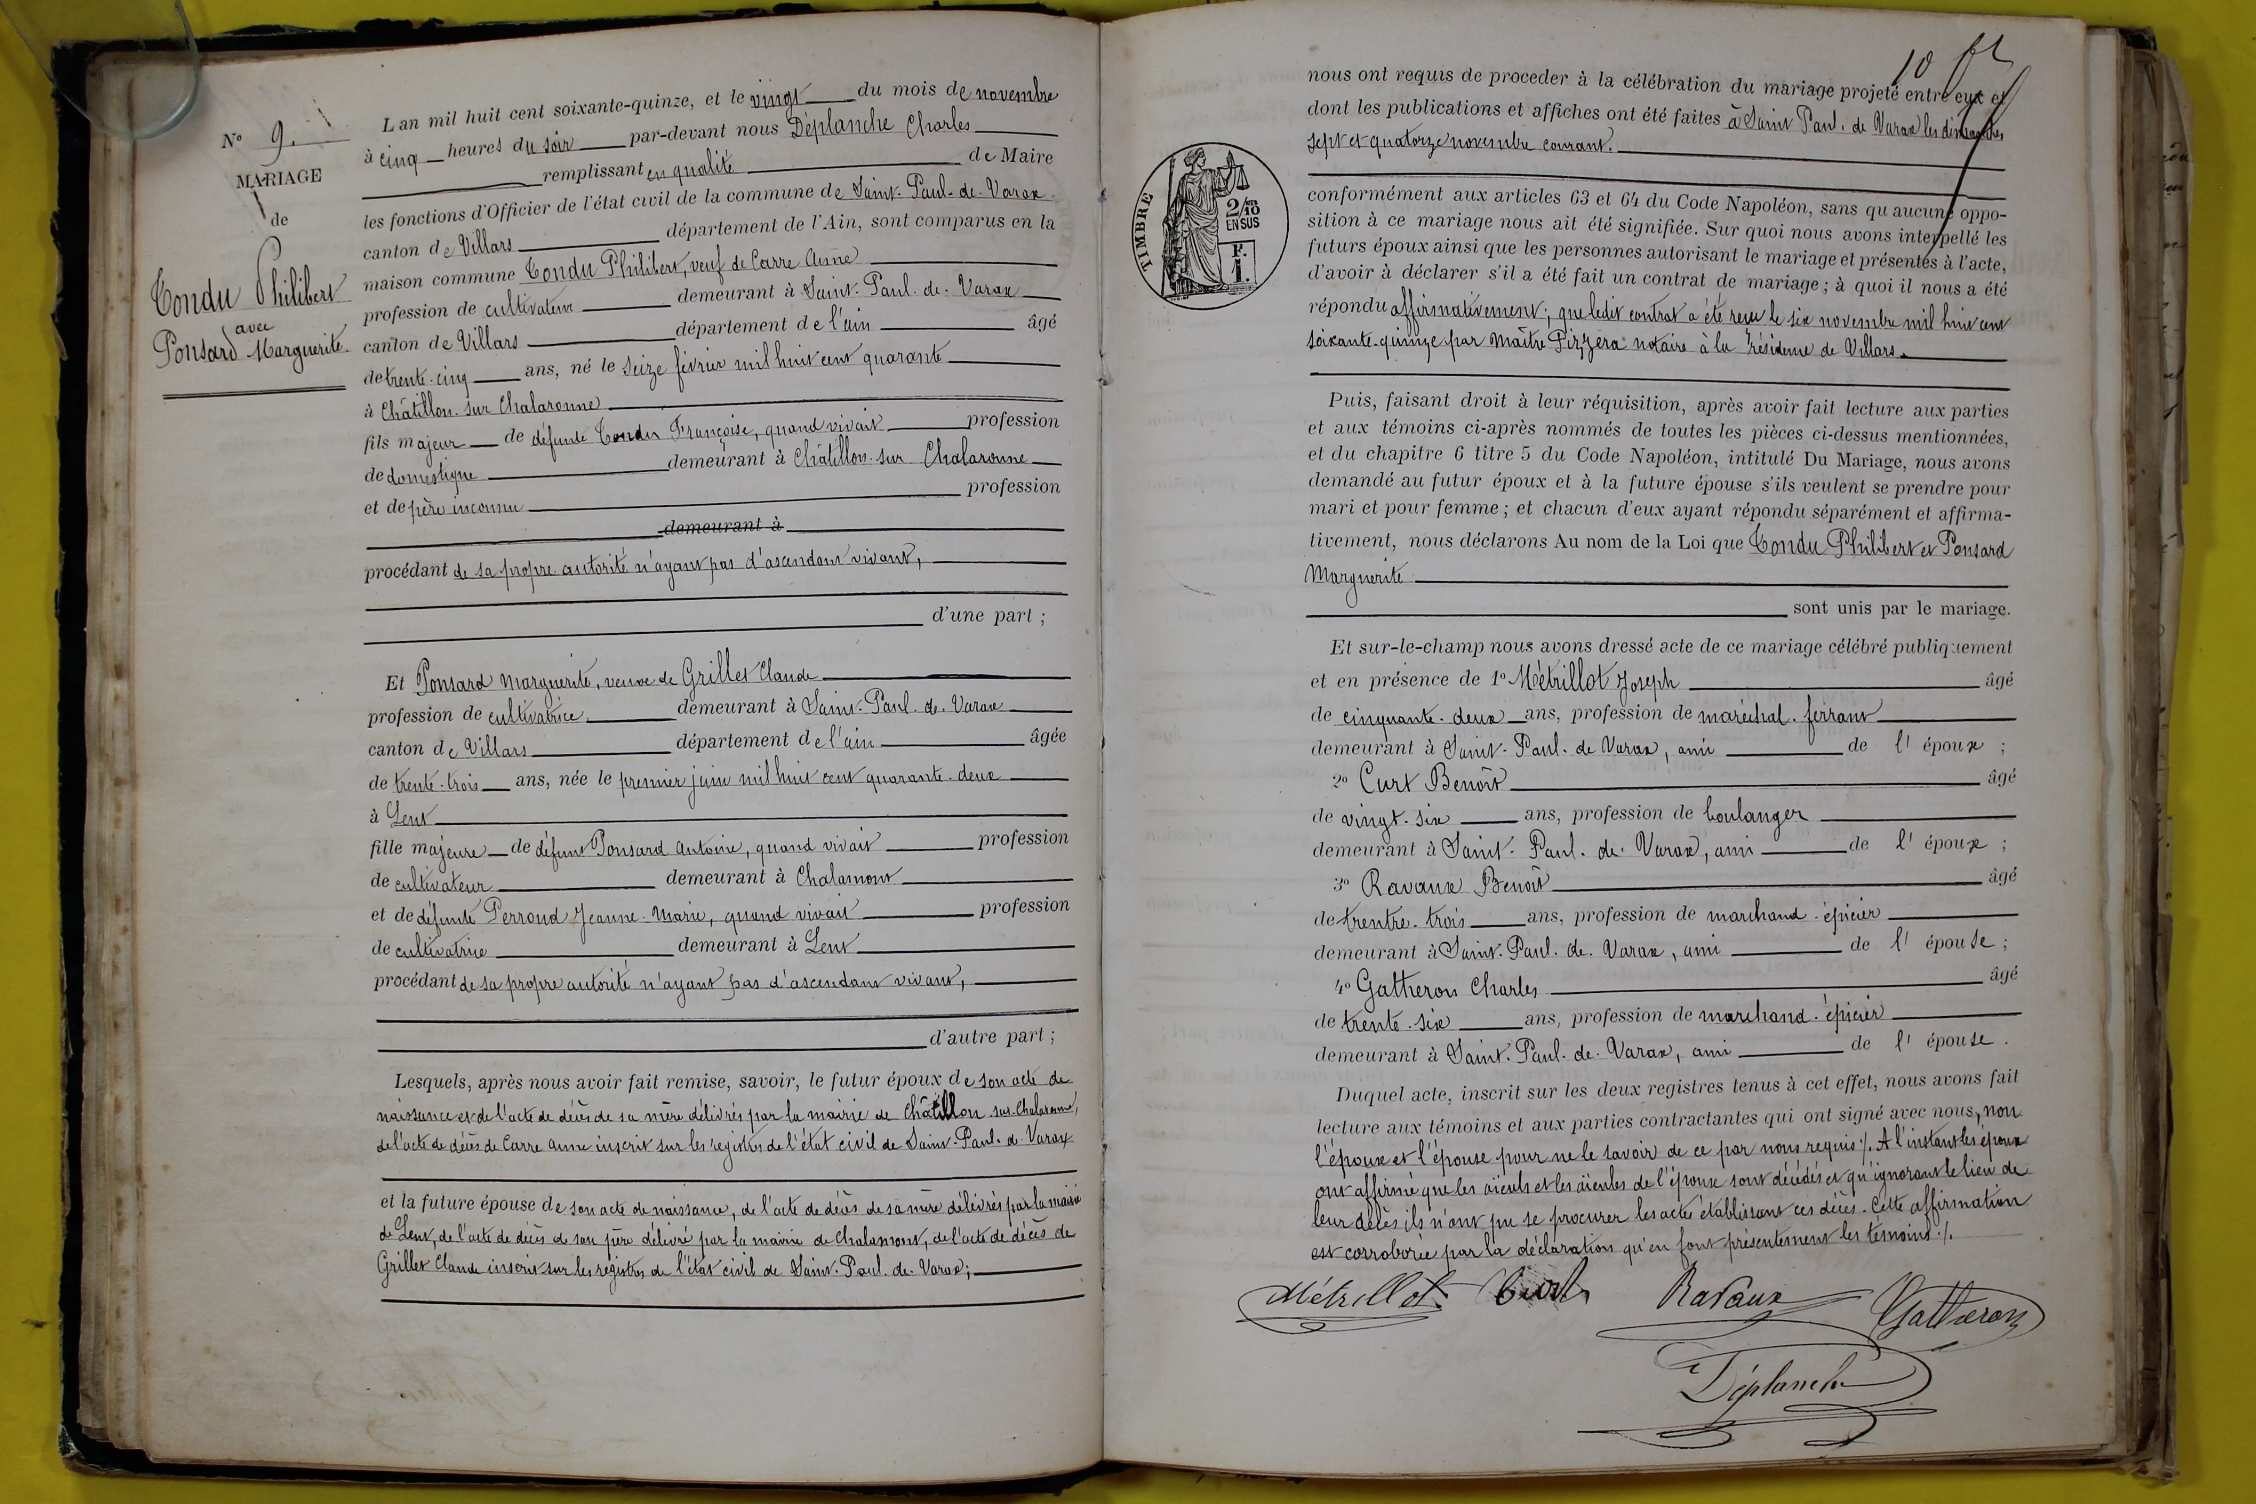 N° 9.
MARIAGE
de
Tondu Philibert
avec
Ponsard Marguerite
L'an mil huit cent soixante-quinze, et le vingt du mois de novembre
à cinq heures du soir par-devant nous Déplanche Charles
remplissant en qualité de Maire
les fonctions d'Officier de l'état civil de la commune de Saint-Paul-de-Varax
canton de Villars département de l'Ain, sont comparus en la
maison commune Tondu Philibert, veuf de Carre Anne
profession de cultivateur demeurant à Saint-Paul-de-Varax
canton de Villars département de l'ain âgé
de trente-cinq ans, né le seize février mil huit cent quarante
à Châtillon-sur-Chalaronne
fils majeur de défunte Tondu Françoise, quand vivait profession
de domestique demeurant à Châtillon-sur-Chalaronne
et de père inconnu profession
demeurant à
procédant de sa propre autorité n'ayant pas d'ascendant vivant,
d'une part ;
Et Ponsard Marguerite, veuve de Grillet Claude
profession de cultivatrice demeurant à Saint-Paul-de-Varax
canton de Villars département de l'ain âgée
de trente-trois ans, née le premier juin mil huit cent quarante-deux
à Lent
fille majeure de défunt Ponsard Antoine, quand vivait profession
de cultivateur demeurant à Chalamont
et de défunte Perroud Jeanne-Marie, quand vivait profession
de cultivatrice demeurant à Lent
procédant de sa propre autorité n'ayant pas d'ascendant vivant,
d'autre part ;
Lesquels, après nous avoir fait remise, savoir, le futur époux de son acte de
naissance et de l'acte de décès de sa mère délivrés par la mairie de Châtillon-sur-Chalaronne,
de l'acte de décès de Carre Anne inscrit sur les registres de l'état civil de Saint-Paul-de-Varax
et la future épouse de son acte de naissance, de l'acte de décès de sa mère délivrés par la mairie
de Lent, de l'acte de décès de son père délivré par la mairie de Chalamont, de l'acte de décès de
Grillet Claude inscrit sur les registres de l'état civil de Saint-Paul-de-Varax ;
10
nous ont requis de proceder à la célébration du mariage projeté entre eux et
dont les publications et affiches ont été faites à Saint Paul-de-Varax les dimanches
sept et quatorze novembre courant.
TIMBRE
2/10 EN SUS
conformément aux articles 63 et 64 du Code Napoléon, sans qu'aucune oppo-
sition à ce mariage nous ait été signifiée. Sur quoi nous avons interpellé les
futurs époux ainsi que les personnes autorisant le mariage et présentes à l'acte,
d'avoir à déclarer s'il a été fait un contrat de mariage ; à quoi il nous a été
répondu affirmativement ; que ledit contrat a été reçu le six novembre mil huit cent
soixante-quinze par Maître Pizzera notaire à la résidence de Villars.
Puis, faisant droit à leur réquisition, après avoir fait lecture aux parties
et aux témoins ci-après nommés de toutes les pièces ci-dessus mentionnées,
et du chapitre 6 titre 5 du Code Napoléon, intitulé Du Mariage, nous avons
demandé au futur époux et à la future épouse s'ils veulent se prendre pour
mari et pour femme ; et chacun d'eux ayant répondu séparément et affirma-
tivement, nous déclarons Au nom de la Loi que Tondu Philibert et Ponsard
Marguerite
sont unis par le mariage.
Et sur-le-champ nous avons dressé acte de ce mariage célébré publiquement
et en présence de 1° Métrillot Joseph âgé
de cinquante-deux ans, profession de maréchal-ferrant
demeurant à Saint-Paul-de-Varax, ami de l'époux ;
2° Curt Benoît âgé
de vingt-six ans, profession de boulanger
demeurant à Saint-Paul-de-Varax, ami de l'époux ;
3° Ravaux Benoît âgé
de trentre-trois ans, profession de marchand-épicier
demeurant à Saint-Paul-de-Varax, ami de l'épouse ;
4° Gatheron Charles âgé
de trente-six ans, profession de marchand-épicier
demeurant à Saint-Paul-de-Varax, ami de l'épouse.
Duquel acte, inscrit sur les deux registres tenus à cet effet, nous avons fait
lecture aux témoins et aux parties contractantes qui ont signé avec nous, non
l'époux et l'épouse pour ne le savoir de ce par nous requis %. A l'instant les époux
ont affirmé que les aïeuls et les aïeules de l'époux sont décédés et qu'ignorant le lieu de
leur décès ils n'ont pu se procurer les actes établissant ces décès. Cette affirmation
est corroborée par la déclaration qu'en font présentement les témoins %.
Métrillot Curt Ravaux Gatheron
Déplanche